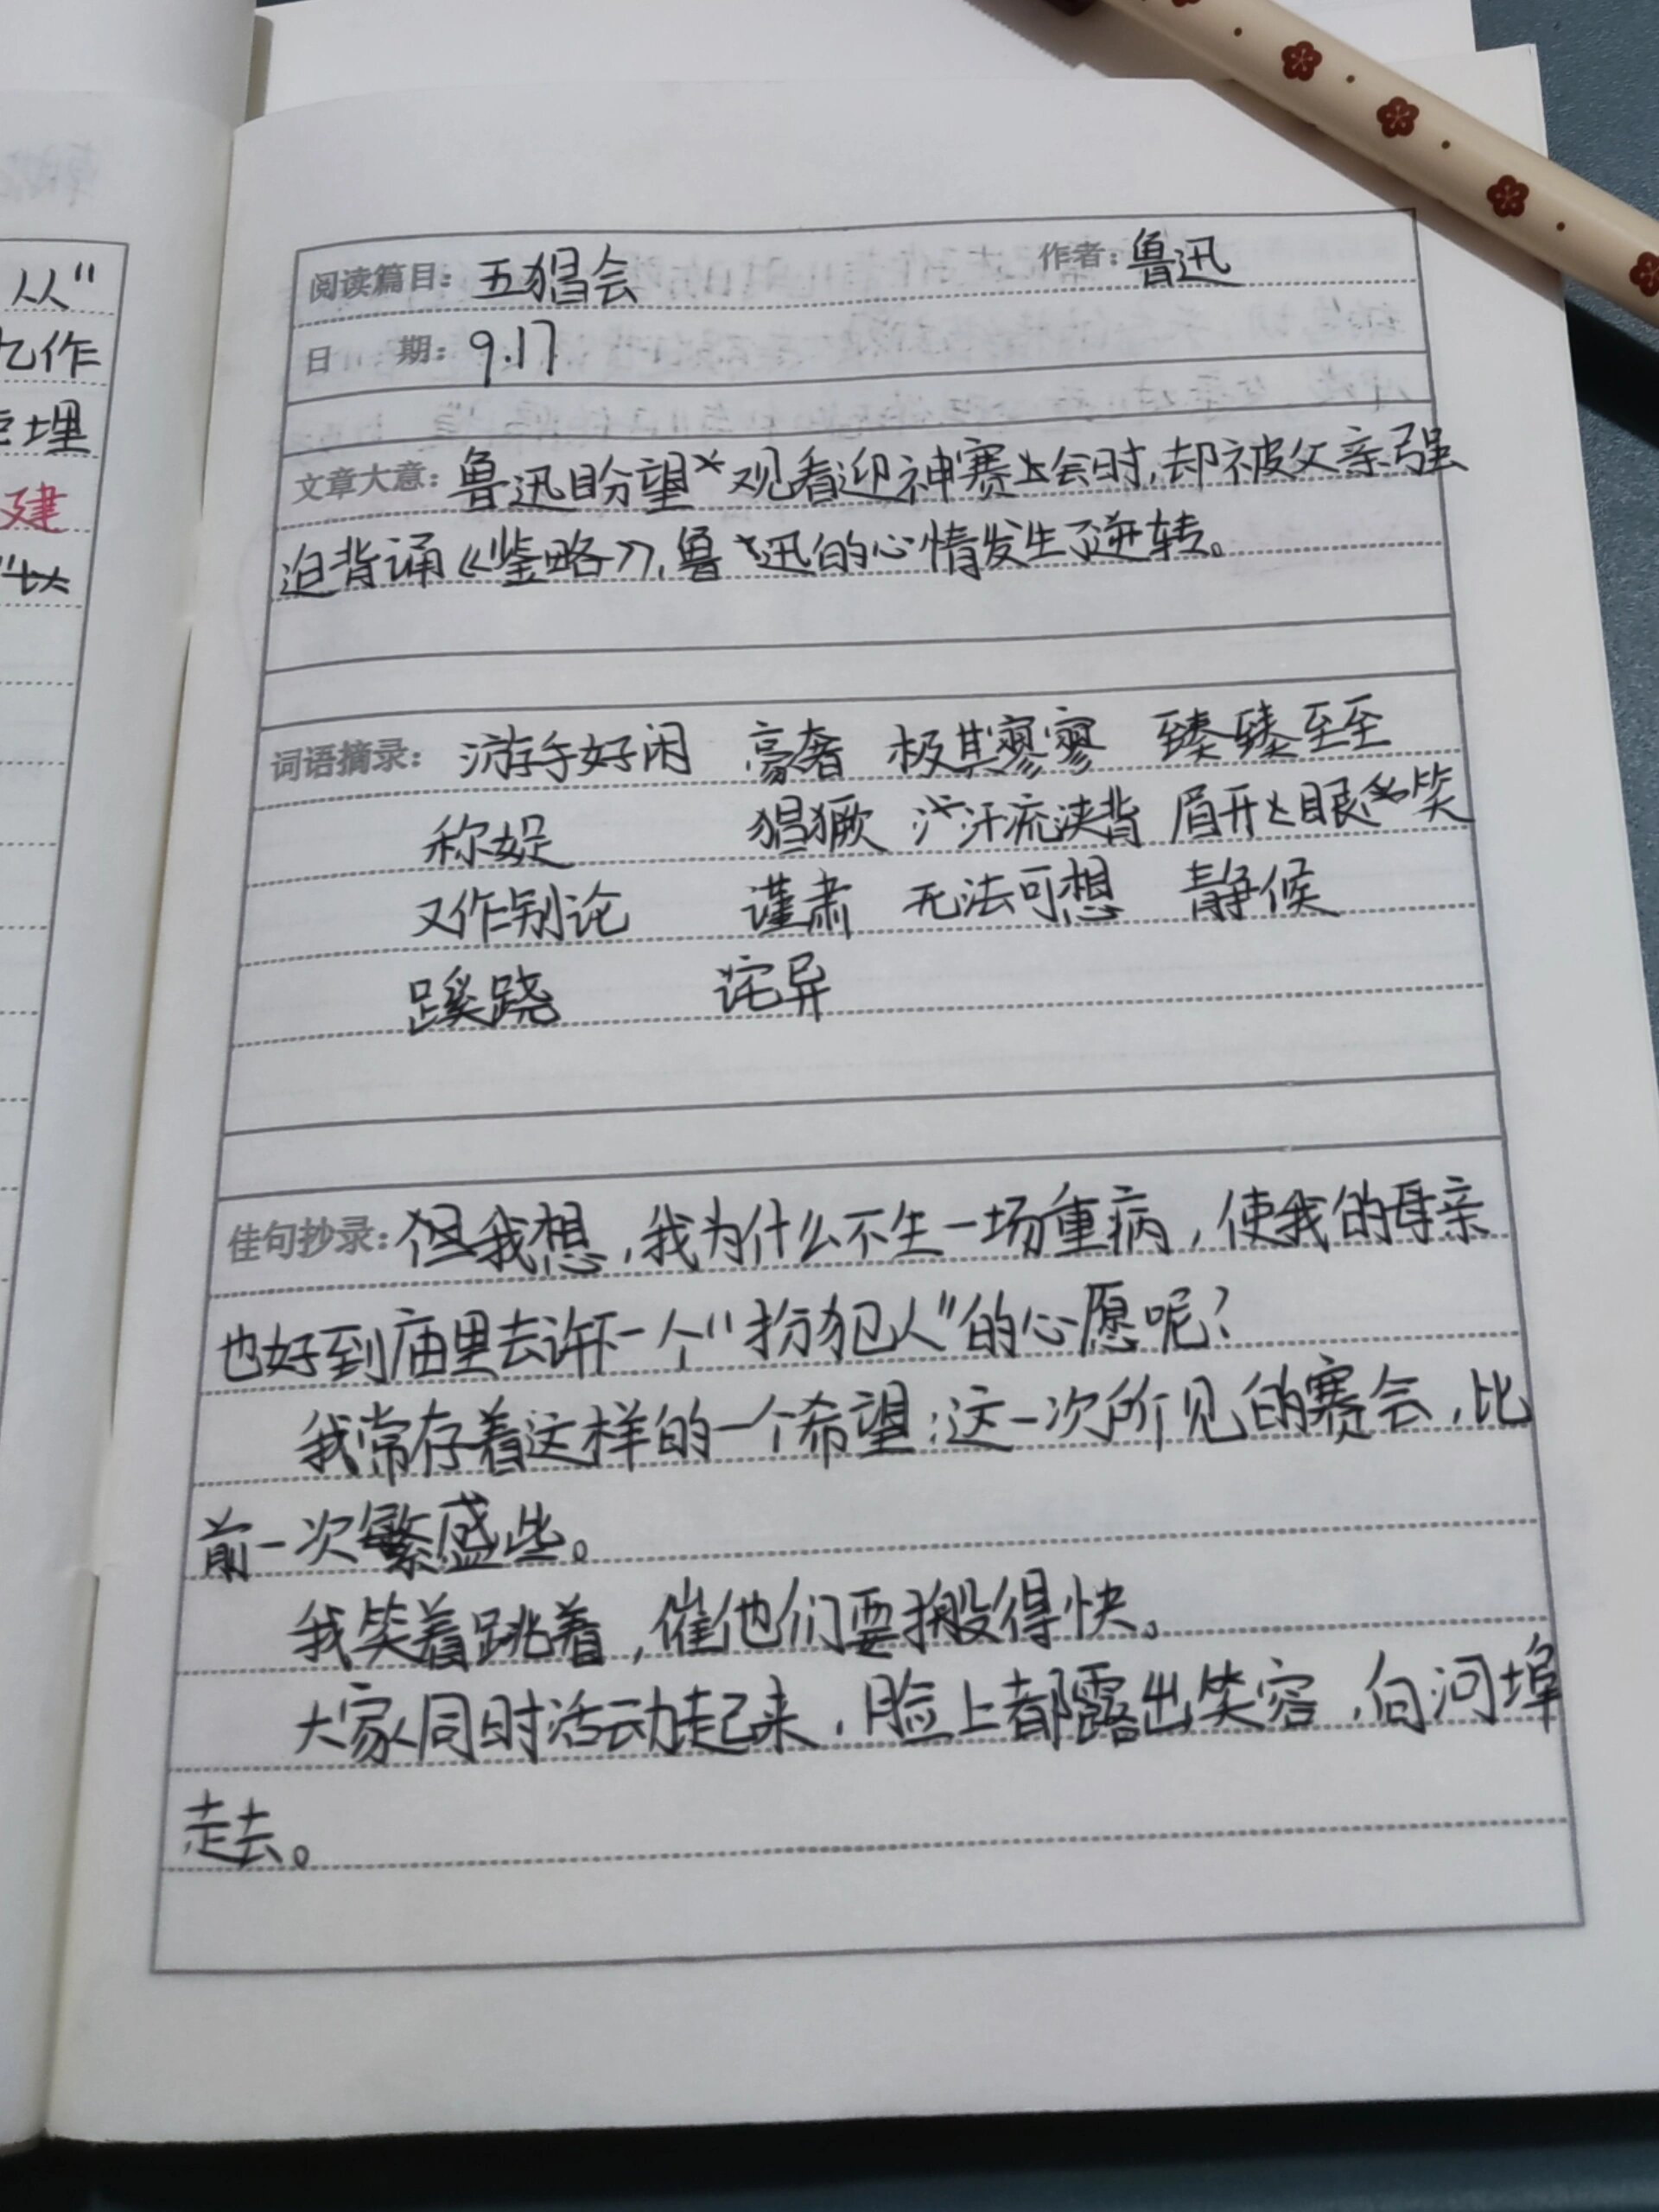 从"
忆作
建
阅读篇目：五猖会 作者：鲁迅
日 期：9.17
文章大意：鲁迅盼望观看迎神赛会时，却被父亲强
迫背诵《鉴略》，鲁迅的心情发生了逆转。
词语摘录：游手好闲 豪奢 极其寥寥 臻臻至至
称娖 猖獗 汗流浃背 眉开眼笑
又作别论 谨肃 无法可想 静候
蹊跷 诧异
佳句抄录：但我想，我为什么不生一场重病，使我的母亲
也好到庙里去许下一个"扮犯人"的心愿呢？
我常存着这样的一个希望：这一次所见的赛会，比
前一次繁盛些。
我笑着跳着，催他们要搬得快。
大家同时活动起来，脸上都露出笑容，向河埠
走去。